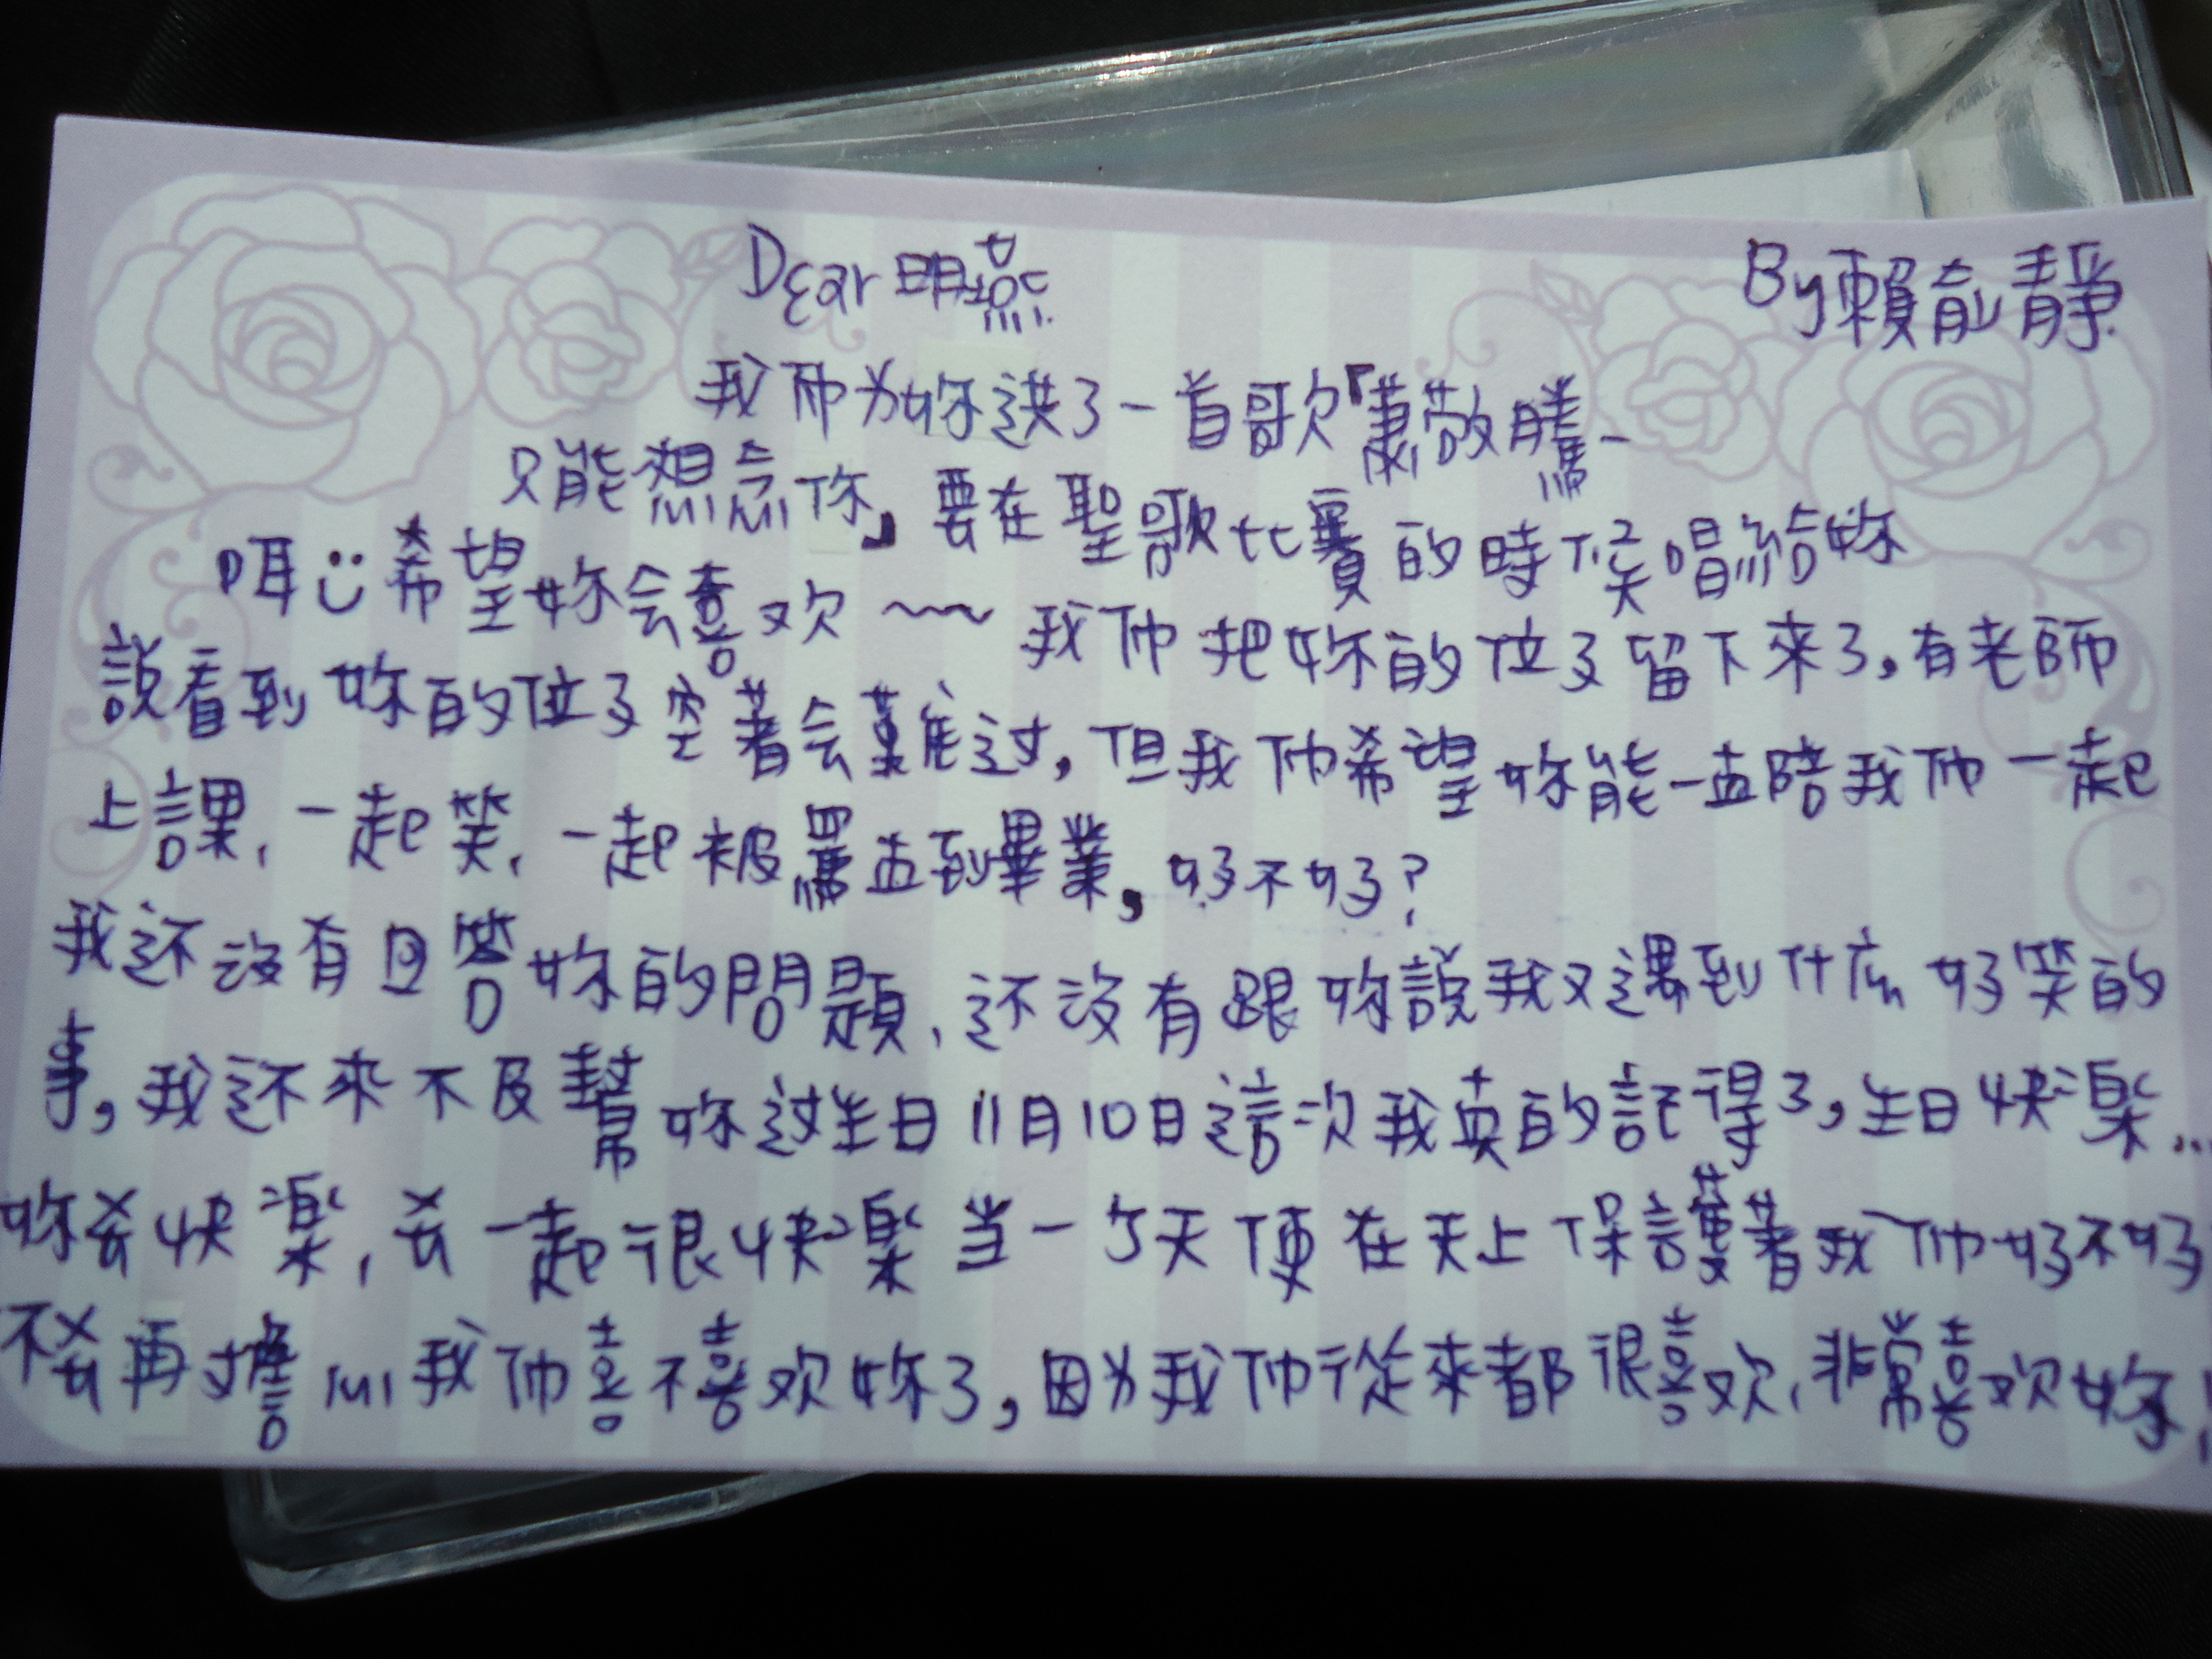 Dear 明燕
By 賴俞靜
我们为妳选了一首歌「蕭敬騰-
只能想念你」要在聖歌比賽的時候唱給妳
哦:)希望妳会喜欢~~我们把妳的位子留下來了,有老師
說看到妳的位子空著会難过,但我们希望妳能一直陪我们一起
上課,一起笑,一起被罵直到畢業,好不好?
我还沒有回答妳的問題,还沒有跟妳說我又遇到什麼好笑的
事,我还來不及幫妳过生日11月10日這次我真的記得了,生日快樂...
妳要快樂,要一起很快樂当一个天使在天上保護著我们好不好
不要再擔心我们喜不喜欢妳了,因为我们從來都很喜欢,非常喜欢妳!